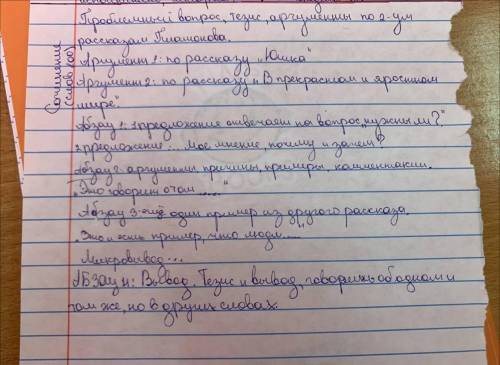 Проблемный вопрос, тезис, аргументы по 2-ум
рассказам Платонова.
Аргумент 1: по рассказу „Юшка"
Аргумент 2: по рассказу: В прекрасном и яростном
мире".
Сочинение
(слов 100)
Абзац 1: 1 предложение отвечаем на вопрос „нужны ли?"
2 предложение:... Мое мнение, почему и зачем?
Абзац 2: аргументы, причины, примеры, комментарии.
„Это говорит о том ....."
Абзац 3: ещё один пример из другого рассказа.
пример, что люди....."
Микровывод...
Абзац 4: Вывод. Тезис и вывод, говорить об одном и
том же, но в других словах.